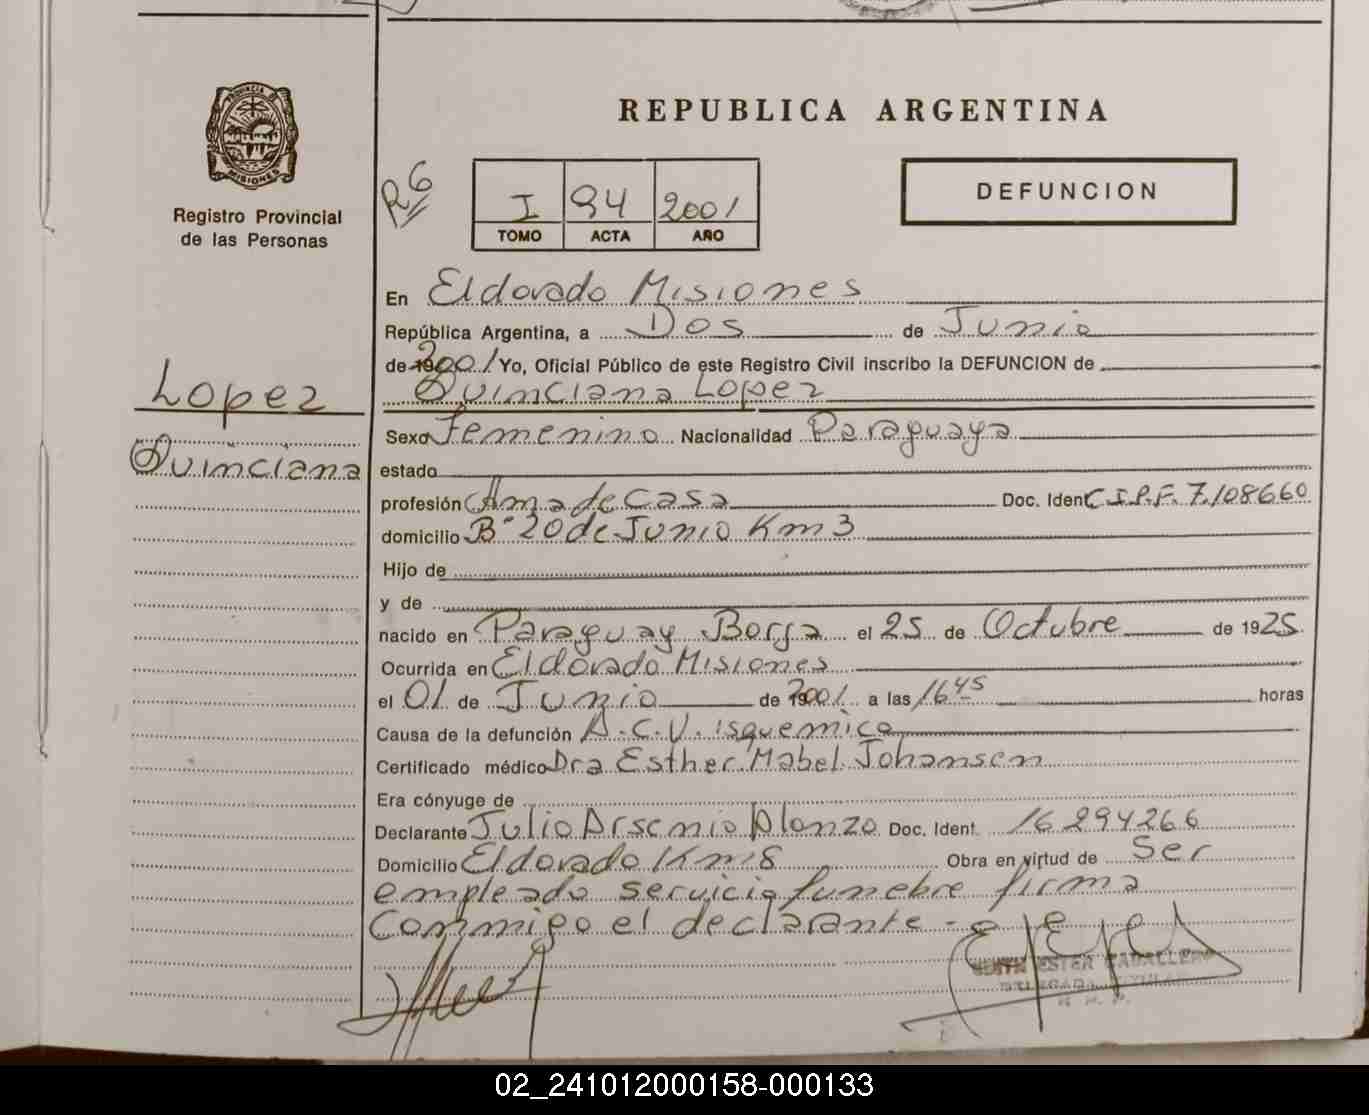 REPUBLICA ARGENTINA
PROVINCIA DE
MISIONES
Registro Provincial
de las Personas
R6
I 94 2001
TOMO ACTA AÑO
DEFUNCION
En Eldorado Misiones
República Argentina, a Dos de Junio
de 2001 Yo, Oficial Público de este Registro Civil inscribo la DEFUNCION de
Lopez
Quinciana Lopez
Sexo Femenino Nacionalidad Paraguaya
Quinciana
estado
profesión Ama de Casa Doc. Ident. C.I.P.F. 7.108660
domicilio Bº 20 de Junio Km 3
Hijo de
y de
nacido en Paraguay Borja el 25 de Octubre de 1925
Ocurrida en Eldorado Misiones
el 01 de Junio de 2001 a las 16 45 horas
Causa de la defunción A.C.V. isquemico
Certificado médico Dra Esther Mabel Johansen
Era cónyuge de
Declarante Julio Arsenio Alonzo Doc. Ident. 16294266
Domicilio Eldorado Km 8 Obra en virtud de Ser
empleado servicio funebre firma
conmigo el declarante -
EDITH ESTER CABALLERO
DELEGADA TITULAR
02_241012000158-000133